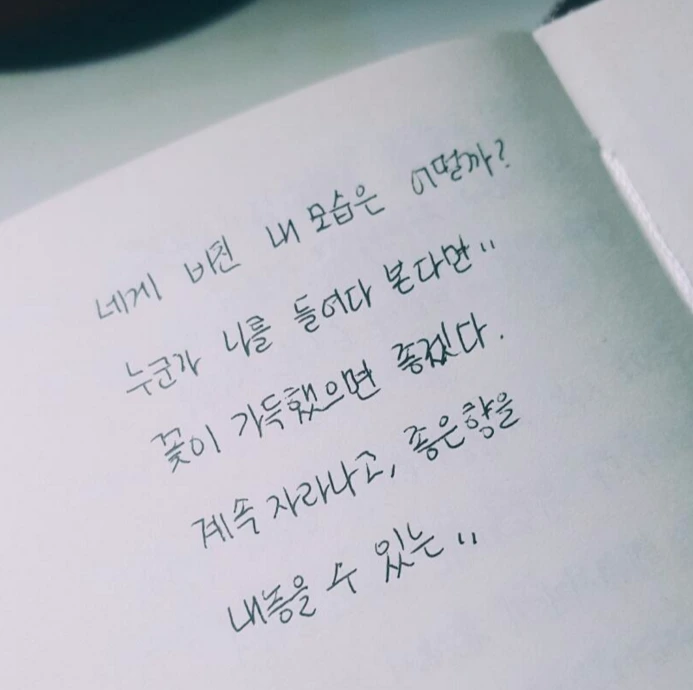 네게 비친 내 모습은 어떨까?
누군가 나를 들어다 본다면..
꽃이 가득했으면 좋겠다.
계속 자라나고, 좋은향을
내놓을 수 있는..